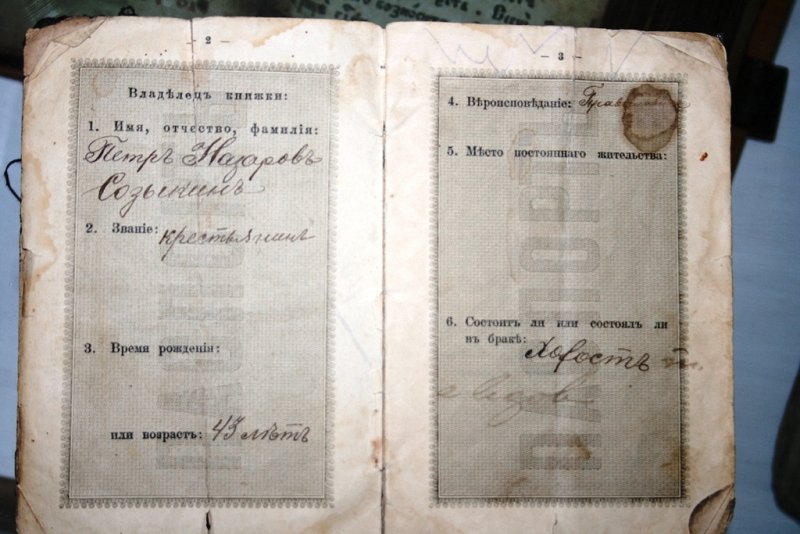 — 2 —
Владѣлецъ книжки:
1. Имя, отчество, фамилія:
Петръ Назаровъ
Созыкинъ
2. Званіе: крестьянинъ
3. Время рожденія:
или возрастъ: 43 лѣтъ
— 3 —
4. Вѣроисповѣданіе:
5. Мѣсто постояннаго жительства:
6. Состоитъ ли или состоялъ ли
въ бракѣ: Холостъ